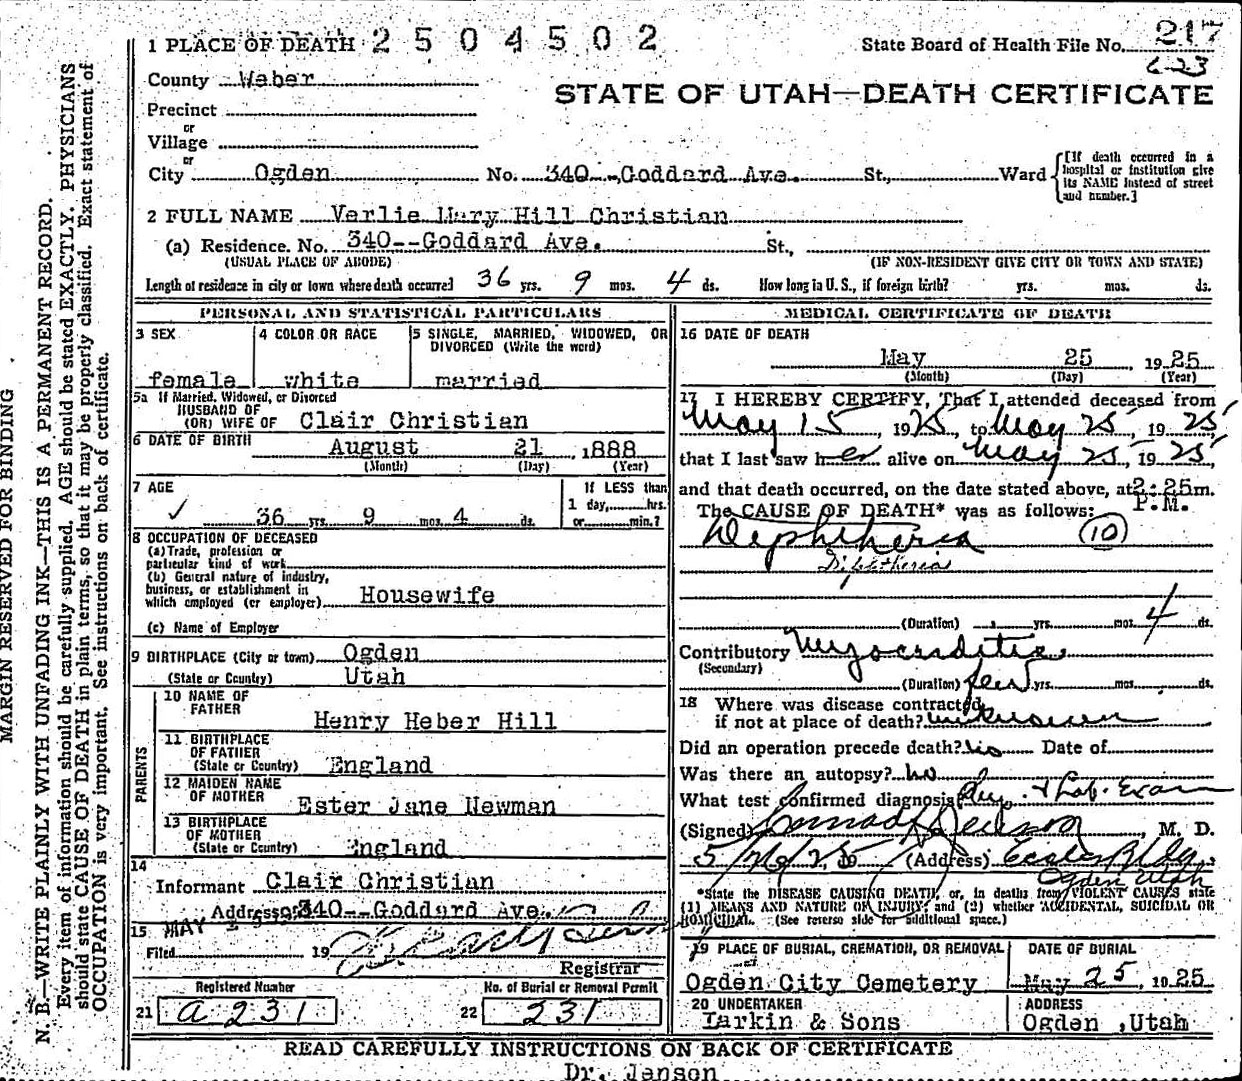 1 PLACE OF DEATH 2 5 0 4 5 0 2
State Board of Health File No. 217
County Weber
STATE OF UTAH—DEATH CERTIFICATE
Precinct
or
Village
or
City Ogden No. 340--Goddard Ave. St., Ward
[If death occurred in a hospital or institution give its NAME instead of street and number.]
2 FULL NAME Verlie Mary Hill Christian
(a) Residence. No. 340--Goddard Ave. St.,
(USUAL PLACE OF ABODE) (IF NON-RESIDENT GIVE CITY OR TOWN AND STATE)
Length of residence in city or town where death occurred 36 yrs. 9 mos. 4 ds. How long in U. S., if foreign birth? yrs. mos. ds.
PERSONAL AND STATISTICAL PARTICULARS
3 SEX
female
4 COLOR OR RACE
white
5 SINGLE, MARRIED, WIDOWED, OR DIVORCED (Write the word)
married
5a If Married, Widowed, or Divorced
HUSBAND OF
(OR) WIFE OF Clair Christian
6 DATE OF BIRTH August 21 ,1888
(Month) (Day) (Year)
7 AGE
36 yrs. 9 mos. 4 ds.
If LESS than
1 day, hrs.
or min.?
8 OCCUPATION OF DECEASED
(a) Trade, profession or
particular kind of work
(b) General nature of industry,
business, or establishment in
which employed (or employer) Housewife
(c) Name of Employer
9 BIRTHPLACE (City or town) Ogden
(State or Country) Utah
PARENTS
10 NAME OF
FATHER
Henry Heber Hill
11 BIRTHPLACE
OF FATHER
(State or Country) England
12 MAIDEN NAME
OF MOTHER
Ester Jane Newman
13 BIRTHPLACE
OF MOTHER
(State or Country) England
14
Informant Clair Christian
Address 340--Goddard Ave.
15 MAY
Filed 19
Registrar
Registered Number
21 a 231
No. of Burial or Removal Permit
22 231
MEDICAL CERTIFICATE OF DEATH
16 DATE OF DEATH
May 25 , 1925
(Month) (Day) (Year)
17 I HEREBY CERTIFY, That I attended deceased from
May 15, 1925, to May 25, 1925,
that I last saw her alive on May 25, 1925,
and that death occurred, on the date stated above, at 2:25 m.
P.M.
The CAUSE OF DEATH* was as follows:
Diphtheria (10)
Diphtheria
(Duration) yrs. mos. 4 ds.
Contributory Myocarditis
(Secondary)
(Duration) few yrs. mos. ds.
18 Where was disease contracted
if not at place of death? unknown
Did an operation precede death? no Date of
Was there an autopsy? no
What test confirmed diagnosis & Lab. Exam
(Signed) Conrad Jenson, M. D.
5/26/25 (Address) Eccles Bldg.
Ogden Utah
*State the DISEASE CAUSING DEATH, or, in deaths from VIOLENT CAUSES state
(1) MEANS AND NATURE OF INJURY; and (2) whether ACCIDENTAL, SUICIDAL OR
HOMICIDAL. (See reverse side for additional space.)
19 PLACE OF BURIAL, CREMATION, OR REMOVAL
Ogden City Cemetery
DATE OF BURIAL
May 25, 1925
20 UNDERTAKER
Larkin & Sons
ADDRESS
Ogden ,Utah
READ CAREFULLY INSTRUCTIONS ON BACK OF CERTIFICATE
Dr. Jenson
MARGIN RESERVED FOR BINDING
N. B.—WRITE PLAINLY WITH UNFADING INK—THIS IS A PERMANENT RECORD.
Every item of information should be carefully supplied. AGE should be stated EXACTLY. PHYSICIANS
should state CAUSE OF DEATH in plain terms, so that it may be properly classified. Exact statement of
OCCUPATION is very important. See instructions on back of certificate.